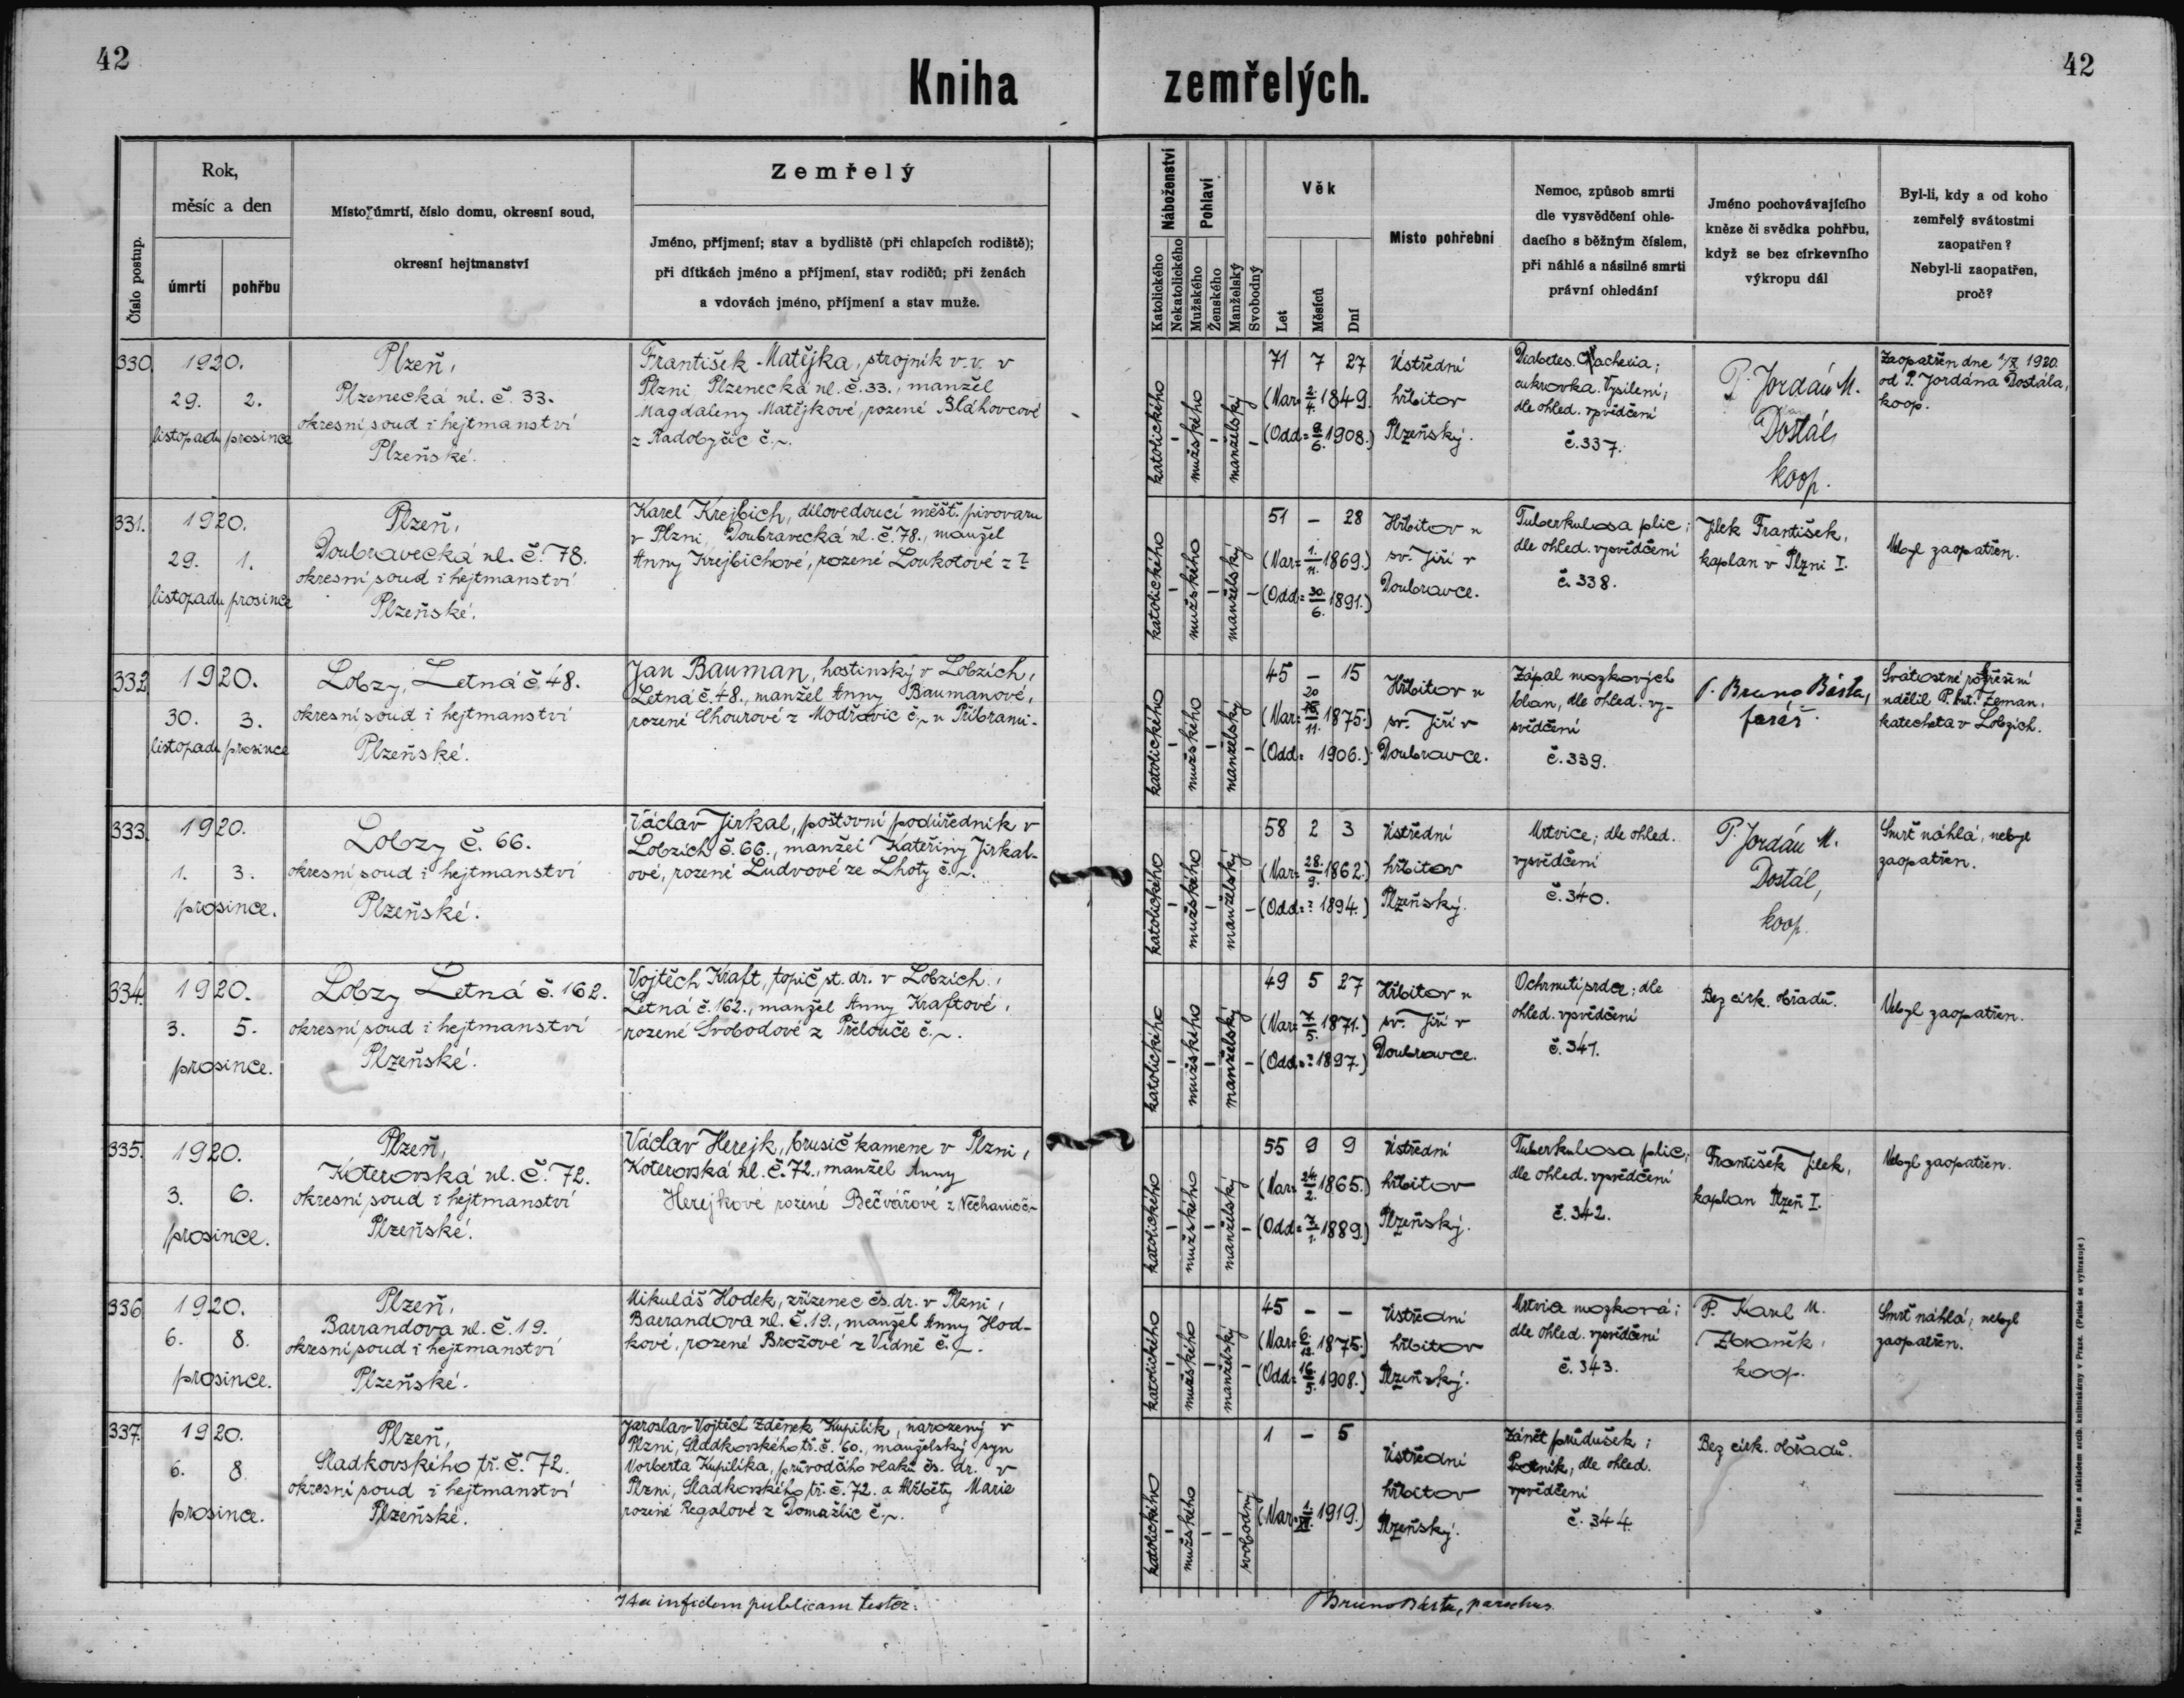 42
42
Kniha zemřelých.
Číslo postup.
Rok,
měsíc a den
úmrtí
pohřbu
Místo úmrtí, číslo domu, okresní soud,
okresní hejtmanství
Zemřelý
Jméno, příjmení; stav a bydliště (při chlapcích rodiště);
při dítkách jméno a příjmení, stav rodičů; při ženách
a vdovách jméno, příjmení a stav muže.
Náboženství
Katolického
Nekatolického
Pohlaví
Mužského
Ženského
Manželský
Svobodný
Věk
Let
Měsíců
Dní
Místo pohřební
Nemoc, způsob smrti
dle vysvědčení ohle-
dacího s běžným číslem,
při náhlé a násilné smrti
právní ohledání
Jméno pochovávajícího
kněze či svědka pohřbu,
když se bez církevního
výkropu dál
Byl-li, kdy a od koho
zemřelý svátostmi
zaopatřen?
Nebyl-li zaopatřen,
proč?
330.
1920.
29. 2.
listopadu prosince
Plzeň,
Plzenecká ul. č. 33.
okresní soud i hejtmanství
Plzeňské.
František Matějka, strojník v. v. v
Plzni Plzenecká ul. č. 33., manžel
Magdaleny Matějkové, rozené Bláhovcové
z Radobyčic č. ~.
katolického - mužského - manželský -
71 7 27
(Nar= 2/4. 1849.)
(Odd= 9/6. 1908.)
Ústřední
hřbitov
Plzeňský.
Diabetes. Cachexia;
cukrovka. Vysílení;
dle ohled. vysvědčení
č. 337.
P. Jordán M.
Dostál,
koop.
Zaopatřen dne 1/X 1920.
od P. Jordána Dostála,
koop.
331.
1920.
29. 1.
listopadu prosince
Plzeň,
Doubravecká ul. č. 78.
okresní soud i hejtmanství
Plzeňské.
Karel Krejbich, dílovedoucí měšť. pivovaru
v Plzni, Doubravecká ul. č. 78., manžel
Anny Krejbichové, rozené Loukotové z ?
katolického - mužského - manželský -
51 - 28
(Nar= 1./11. 1869.)
(Odd= 30./6. 1891.)
Hřbitov u
sv. Jiří v
Doubravce.
Tuberkulosa plic;
dle ohled. vysvědčení
č. 338.
Jílek František,
kaplan v Plzni I.
Nebyl zaopatřen.
332.
1920.
30. 3.
listopadu prosince
Lobzy, Letná č. 48.
okresní soud i hejtmanství
Plzeňské.
Jan Bauman, hostinský v Lobzích,
Letná č. 48., manžel Anny Baumanové,
rozené Chourové z Modřovic č. ~ u Příbrami.
katolického - mužského - manželský -
45 - 15
(Nar= 20/11. 1875.)
(Odd= 1906.)
Hřbitov u
sv. Jiří v
Doubravce.
Zápal mozkových
blan, dle ohled. vy-
svědčení
č. 339.
P. Bruno Bárta,
farář.
Svátostné rozhřešení
udělil P. Ant. Zeman,
katecheta v Lobzích.
333.
1920.
1. 3.
prosince.
Lobzy č. 66.
okresní soud i hejtmanství
Plzeňské.
Václav Jirkal, poštovní podúředník v
Lobzích č. 66., manžel Kateřiny Jirkal-
ové, rozené Ludvové ze Lhoty č. ~.
katolického - mužského - manželský -
58 2 3
(Nar= 28./9. 1862.)
(Odd= ? 1894.)
Ústřední
hřbitov
Plzeňský.
Mrtvice; dle ohled.
vysvědčení
č. 340.
P. Jordán M.
Dostál,
koop.
Smrť náhlá, nebyl
zaopatřen.
334.
1920.
3. 5.
prosince.
Lobzy Letná č. 162.
okresní soud i hejtmanství
Plzeňské.
Vojtěch Kraft, topič st. dr. v Lobzích,
Letná č. 162., manžel Anny Kraftové,
rozené Svobodové z Přelouče č. ~.
katolického - mužského - manželský -
49 5 27
(Nar= 7/5. 1871.)
(Odd= ? 1897.)
Hřbitov u
sv. Jiří v
Doubravce.
Ochrnutí srdce; dle
ohled. vysvědčení
č. 341.
Bez círk. obřadů.
Nebyl zaopatřen.
335.
1920.
3. 6.
prosince.
Plzeň,
Koterovská ul. č. 72.
okresní soud i hejtmanství
Plzeňské.
Václav Herejk, brusič kamene v Plzni,
Koterovská ul. č. 72., manžel Anny
Herejkové rozené Bečvářové z Nechanic č. ~
katolického - mužského - manželský -
55 9 9
(Nar= 24./2. 1865.)
(Odd= 7/1. 1889.)
Ústřední
hřbitov
Plzeňský.
Tuberkulosa plic;
dle ohled. vysvědčení
č. 342.
František Jílek,
kaplan Plzeň I.
Nebyl zaopatřen.
336.
1920.
6. 8.
prosince.
Plzeň,
Barrandova ul. č. 19.
okresní soud i hejtmanství
Plzeňské.
Mikuláš Hodek, zřízenec čs. dr. v Plzni,
Barrandova ul. č. 19., manžel Anny Hod-
kové, rozené Brožové z Vídně č. ~.
katolického - mužského - manželský -
45 - -
(Nar= 6./12. 1875.)
(Odd= 16./5. 1908.)
Ústřední
hřbitov
Plzeňský.
Mrtvice mozková;
dle ohled. vysvědčení
č. 343.
P. Karel M.
koop.
Smrť náhlá, nebyl
zaopatřen.
337.
1920.
6. 8.
prosince.
Plzeň,
Sladkovského tř. č. 72.
okresní soud i hejtmanství
Plzeňské.
Jaroslav Vojtěch Zdeněk Kupilík, narozený v
Plzni, Sladkovského tř. č. 60., manželský syn
Norberta Kupilíka, průvodčího vlaků čs. dr. v
Plzni, Sladkovského tř. č. 72. a Alžběty Marie
rozené Regalové z Domažlic č. ~.
katolického - mužského - - svobodný
1 - 5
(Nar= 1919.)
Ústřední
hřbitov
Plzeňský.
Zánět průdušek;
Psotník, dle ohled.
vysvědčení
č. 344.
Bez círk. obřadů.
Ita in fidem publicam testor:
P Bruno Bárta, parochus
Tiskem a nákladem arcib. knihtiskárny v Praze. (Patisk se vyhrazuje)